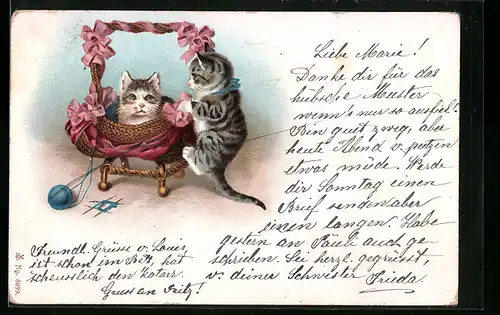 Liebe Marie!
Danke dir für das
hübsche Muster
wenn's nur so ausfiel!
Bin guet z'weg, aber
heute Abend v. putzen
etwas müde. Werde
dir Sonntag einen
Brief senden aber
einen langen. Habe
gestern an Pauli auch ge
schrieben. Sei herzl. gegrüsst
v. deiner Schwester Frieda.
Freundl. Grüsse v. Louis,
ist schon im Bett, hat
scheusslich den Katarr.
Gruss an Fritz!
No. 6899.